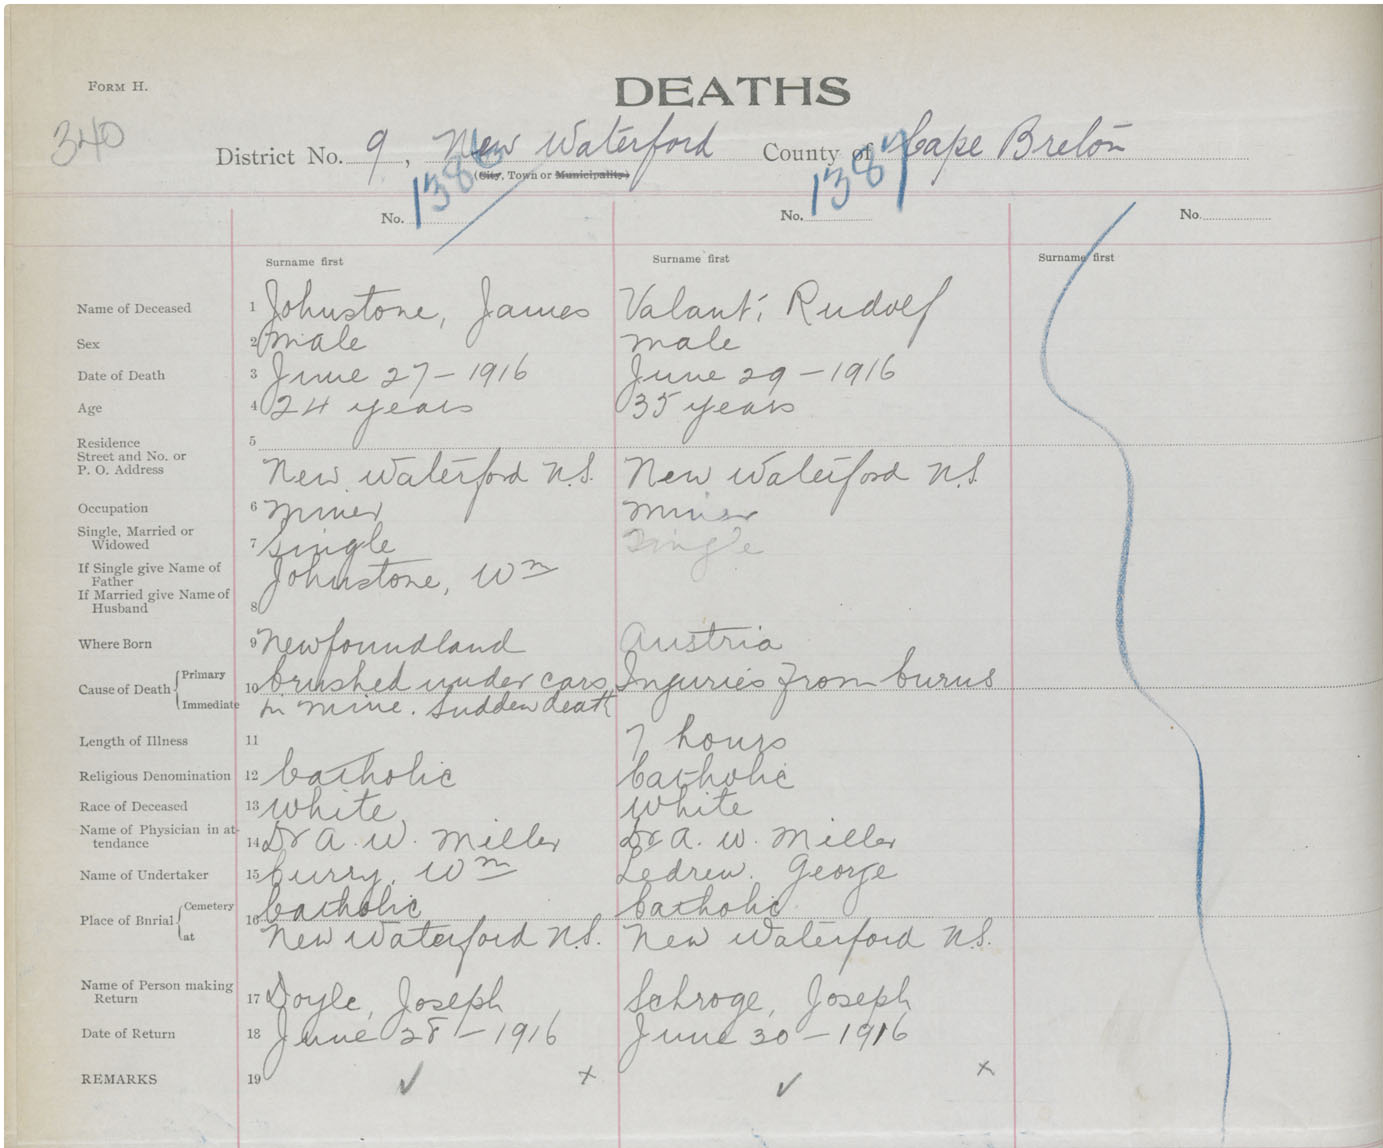 FORM H.
DEATHS
340
District No. 9, New Waterford County of Cape Breton
(City, Town or Municipality)
No. 1386
No. 1387
No.
Surname first
Surname first
Surname first
Name of Deceased 1 Johnstone, James Valant, Rudolf
Sex 2 male male
Date of Death 3 June 27-1916 June 29-1916
Age 4 24 years 35 years
Residence 5
Street and No. or
P. O. Address New Waterford N.S. New Waterford N.S.
Occupation 6 miner miner
Single, Married or
Widowed 7 single Single
If Single give Name of
Father Johnstone, Wm
If Married give Name of
Husband 8
Where Born 9 Newfoundland Austria
Cause of Death Primary 10 Crushed under cars Inguries from burns
Immediate in mine. Sudden death
Length of Illness 11 7 hours
Religious Denomination 12 Catholic Catholic
Race of Deceased 13 white white
Name of Physician in at-
tendance 14 Dr A. W. Miller Dr A. W. Miller
Name of Undertaker 15 Curry, Wm Ledrew, George
Place of Burial Cemetery 16 Catholic Catholic
at New Waterford N.S. New Waterford N.S.
Name of Person making
Return 17 Doyle, Joseph Schroge, Joseph
Date of Return 18 June 28-1916 June 30-1916
REMARKS 19 ✓ x ✓ x